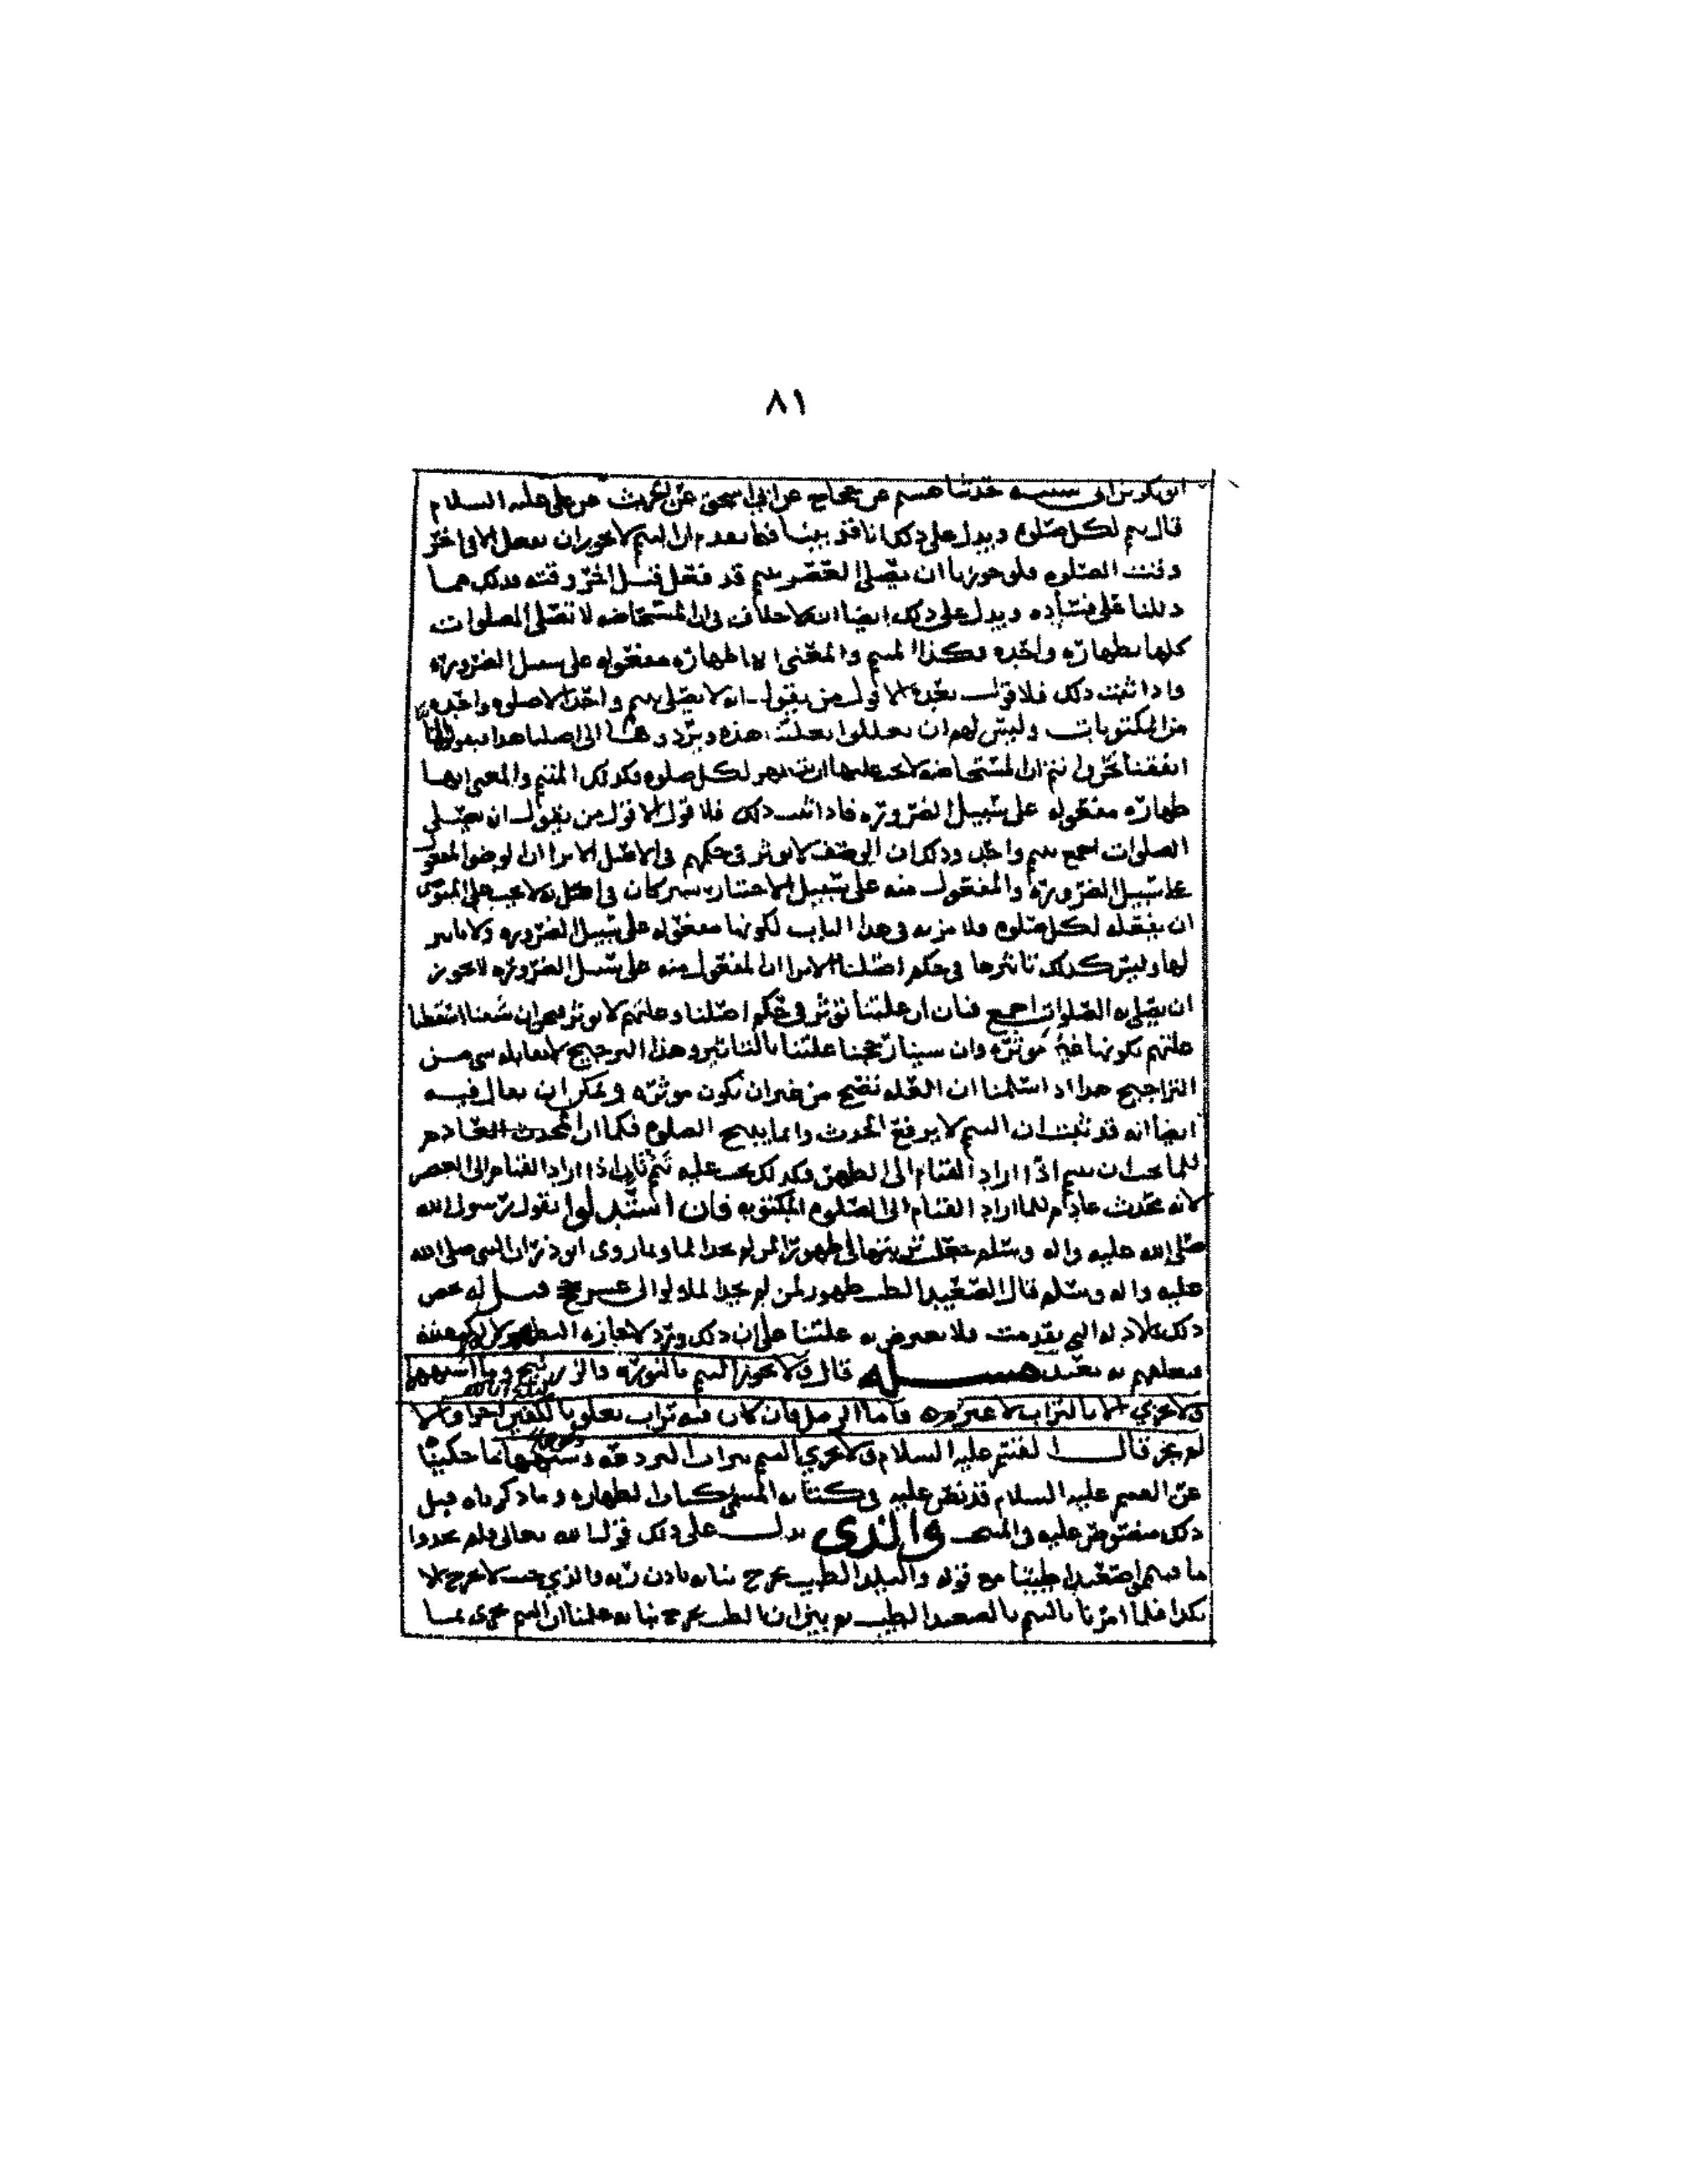 ٨١
ابو بكر بن ابي شيبه حدثنا هشيم عن حجاج عن ابي اسحق عن الحرث عن علي عليه السلام
قال يتيمم لكل صلوة ويدل على ذلك انا قد بينا فيما تقدم ان التيمم لا يجوز ان يفعل الا في اخر
وقت الصلوة فلو جوزنا ان يصلي العصر بتيمم قد فعل قبل اخر وقته فذلك مما
دللنا على فساده ويدل على ذلك ايضا انه لا خلاف في ان المستحاضه لا تصلي الصلوات
كلها بطهارة واحده فكذا المتيمم والمعنى انها طهارة مفعوله على سبيل الضرورة
واذا ثبت ذلك فلا قول بعده الا قول من يقول انه لا يصلي بتيمم واحد الا صلوة واحده
من المكتوبات وليس لهم ان يعللوا بعلتنا هذه ويردوها الى اصلنا هذا فيقولوا لما
اتفقنا نحن وانتم ان المستحاضه لا يجب عليها ان تتطهر لكل صلوة فكذلك المتيمم والمعنى انها
طهارة مفعوله على سبيل الضرورة فاذا ثبت ذلك فلا قول الا قول من يقول ان يصلي
الصلوات اجمع بتيمم واحد وذلك ان الوصف لا يوثر في حكمهم في الاصل الا ترا ان الوضوء المفعول
على سبيل الضرورة والمفعول منه على سبيل الاختيار سيان في انه لا يجب على المتوضي
ان يفعله لكل صلوة فلا مزيه في هذا الباب لكونها مفعوله على سبيل الضرورة ولا تاثير
لها وليس كذلك تاثيرها في حكم اصلنا الا ترا ان المفعول منه على سبيل الضرورة لا يجوز
ان يصلى به الصلوات اجمع فبان ان علتنا توثر في حكم اصلنا وعلتهم لا توثر فيه وان شينا اسقطنا
علتهم بكونها غير موثرة وان شينا رجحنا علتنا بالتاثير وهذا الترجيح لا يقابله شي من
التراجيح هذا اذا سلمنا ان العله تصح من غير ان تكون موثره ويمكن ان يقال فيه
ايضا انه قد ثبت ان التيمم لا يرفع الحدث وانما يبيح الصلوة فكما ان المحدث العادم
للما يجب ان يتيمم اذا اراد القيام الى الظهر فكذلك يجب عليه تيمم ثان اذا اراد القيام الى العصر
لانه محدث عادم للما اراد القيام الى الصلوة المكتوبه فان استدلوا بقول رسول الله
صلى الله عليه واله وسلم جعلت تربتها لي طهورا لمن لم يجد الما وبما روى ابو ذر ان النبي صلى الله
عليه واله وسلم قال الصعيد الطيب طهور لمن لم يجد الماء ولو الى عشر حجج قيل له نخص
ذلك بالادله التي تقدمت فلا يعترض به علتنا على ان ذلك ورد لاجازه التطهر
مسله قال ولا يجوز التيمم بالنورة والزرنيخ وما اشبههما
ولا يجزي الا بالتراب لا غيره فاما الرمل فان كان فيه تراب يعلق بالكفين اجزا والا
لم يجز قال القسم عليه السلام ولا يجزي التيمم بتراب البردعه وشبهها ما حكيناه
عن القسم عليه السلام قد نص عليه في كتابه المسمى كتاب الطهاره وما ذكرناه قبل
ذلك منصوص عليه في المنتخب والذي يدل على ذلك قول الله تعالى فلم تجدوا
ما فتيمموا صعيدا طيبا مع قوله والبلد الطيب يخرج نباته باذن ربه والذي خبث لا يخرج الا
نكدا فلما امرنا بالتيمم بالصعيد الطيب ثم بين ان الطيب يخرج نباته علمنا ان التيمم يجزي بما